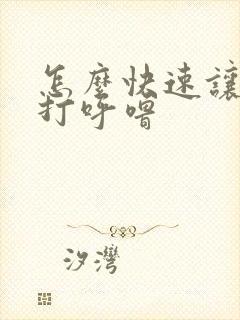 怎麼快速讓
打呼嚕
汐灣